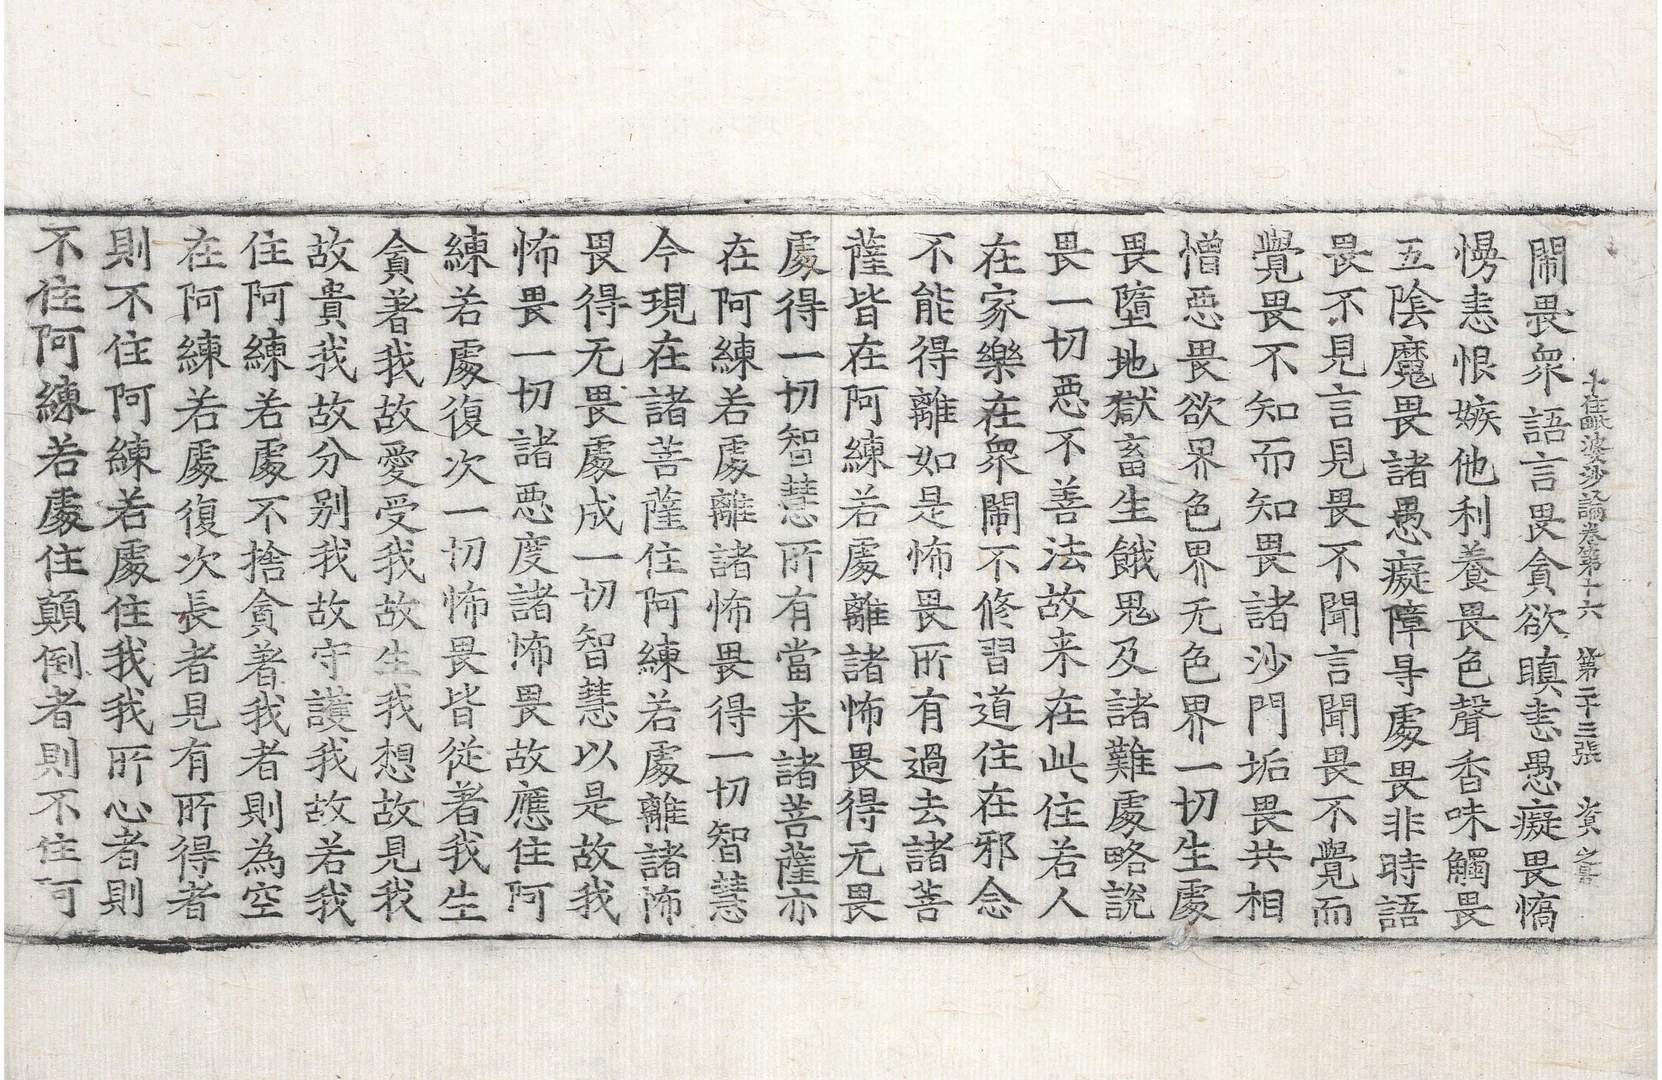 十住毗婆沙論卷第十六 第二十三張 資
閙畏衆語言畏貪欲瞋恚愚癡畏憍
慢恚恨嫉他利養畏色聲香味觸畏
五陰魔畏諸愚癡障㝵處畏非時語
畏不見言見畏不聞言聞畏不覺而
覺畏不知而知畏諸沙門垢畏共相
憎惡畏欲界色界无色界一切生處
畏墮地獄畜生餓鬼及諸難處略說
畏一切惡不善法故来在此住若人
在家樂在衆閙不修習道住在邪念
不能得離如是怖畏所有過去諸菩
薩皆在阿練若處離諸怖畏得无畏
處得一切智慧所有當来諸菩薩亦
在阿練若處離諸怖畏得一切智慧
今現在諸菩薩住阿練若處離諸怖
畏得无畏處成一切智慧以是故我
怖畏一切諸惡度諸怖畏故應住阿
練若處復次一切怖畏皆從著我生
貪著我故愛受我故生我想故見我
故貴我故分別我故守護我故若我
住阿練若處不捨貪著我者則為空
在阿練若處復次長者見有所得者
則不住阿練若處住我我所心者則
不住阿練若處住顛倒者則不住阿